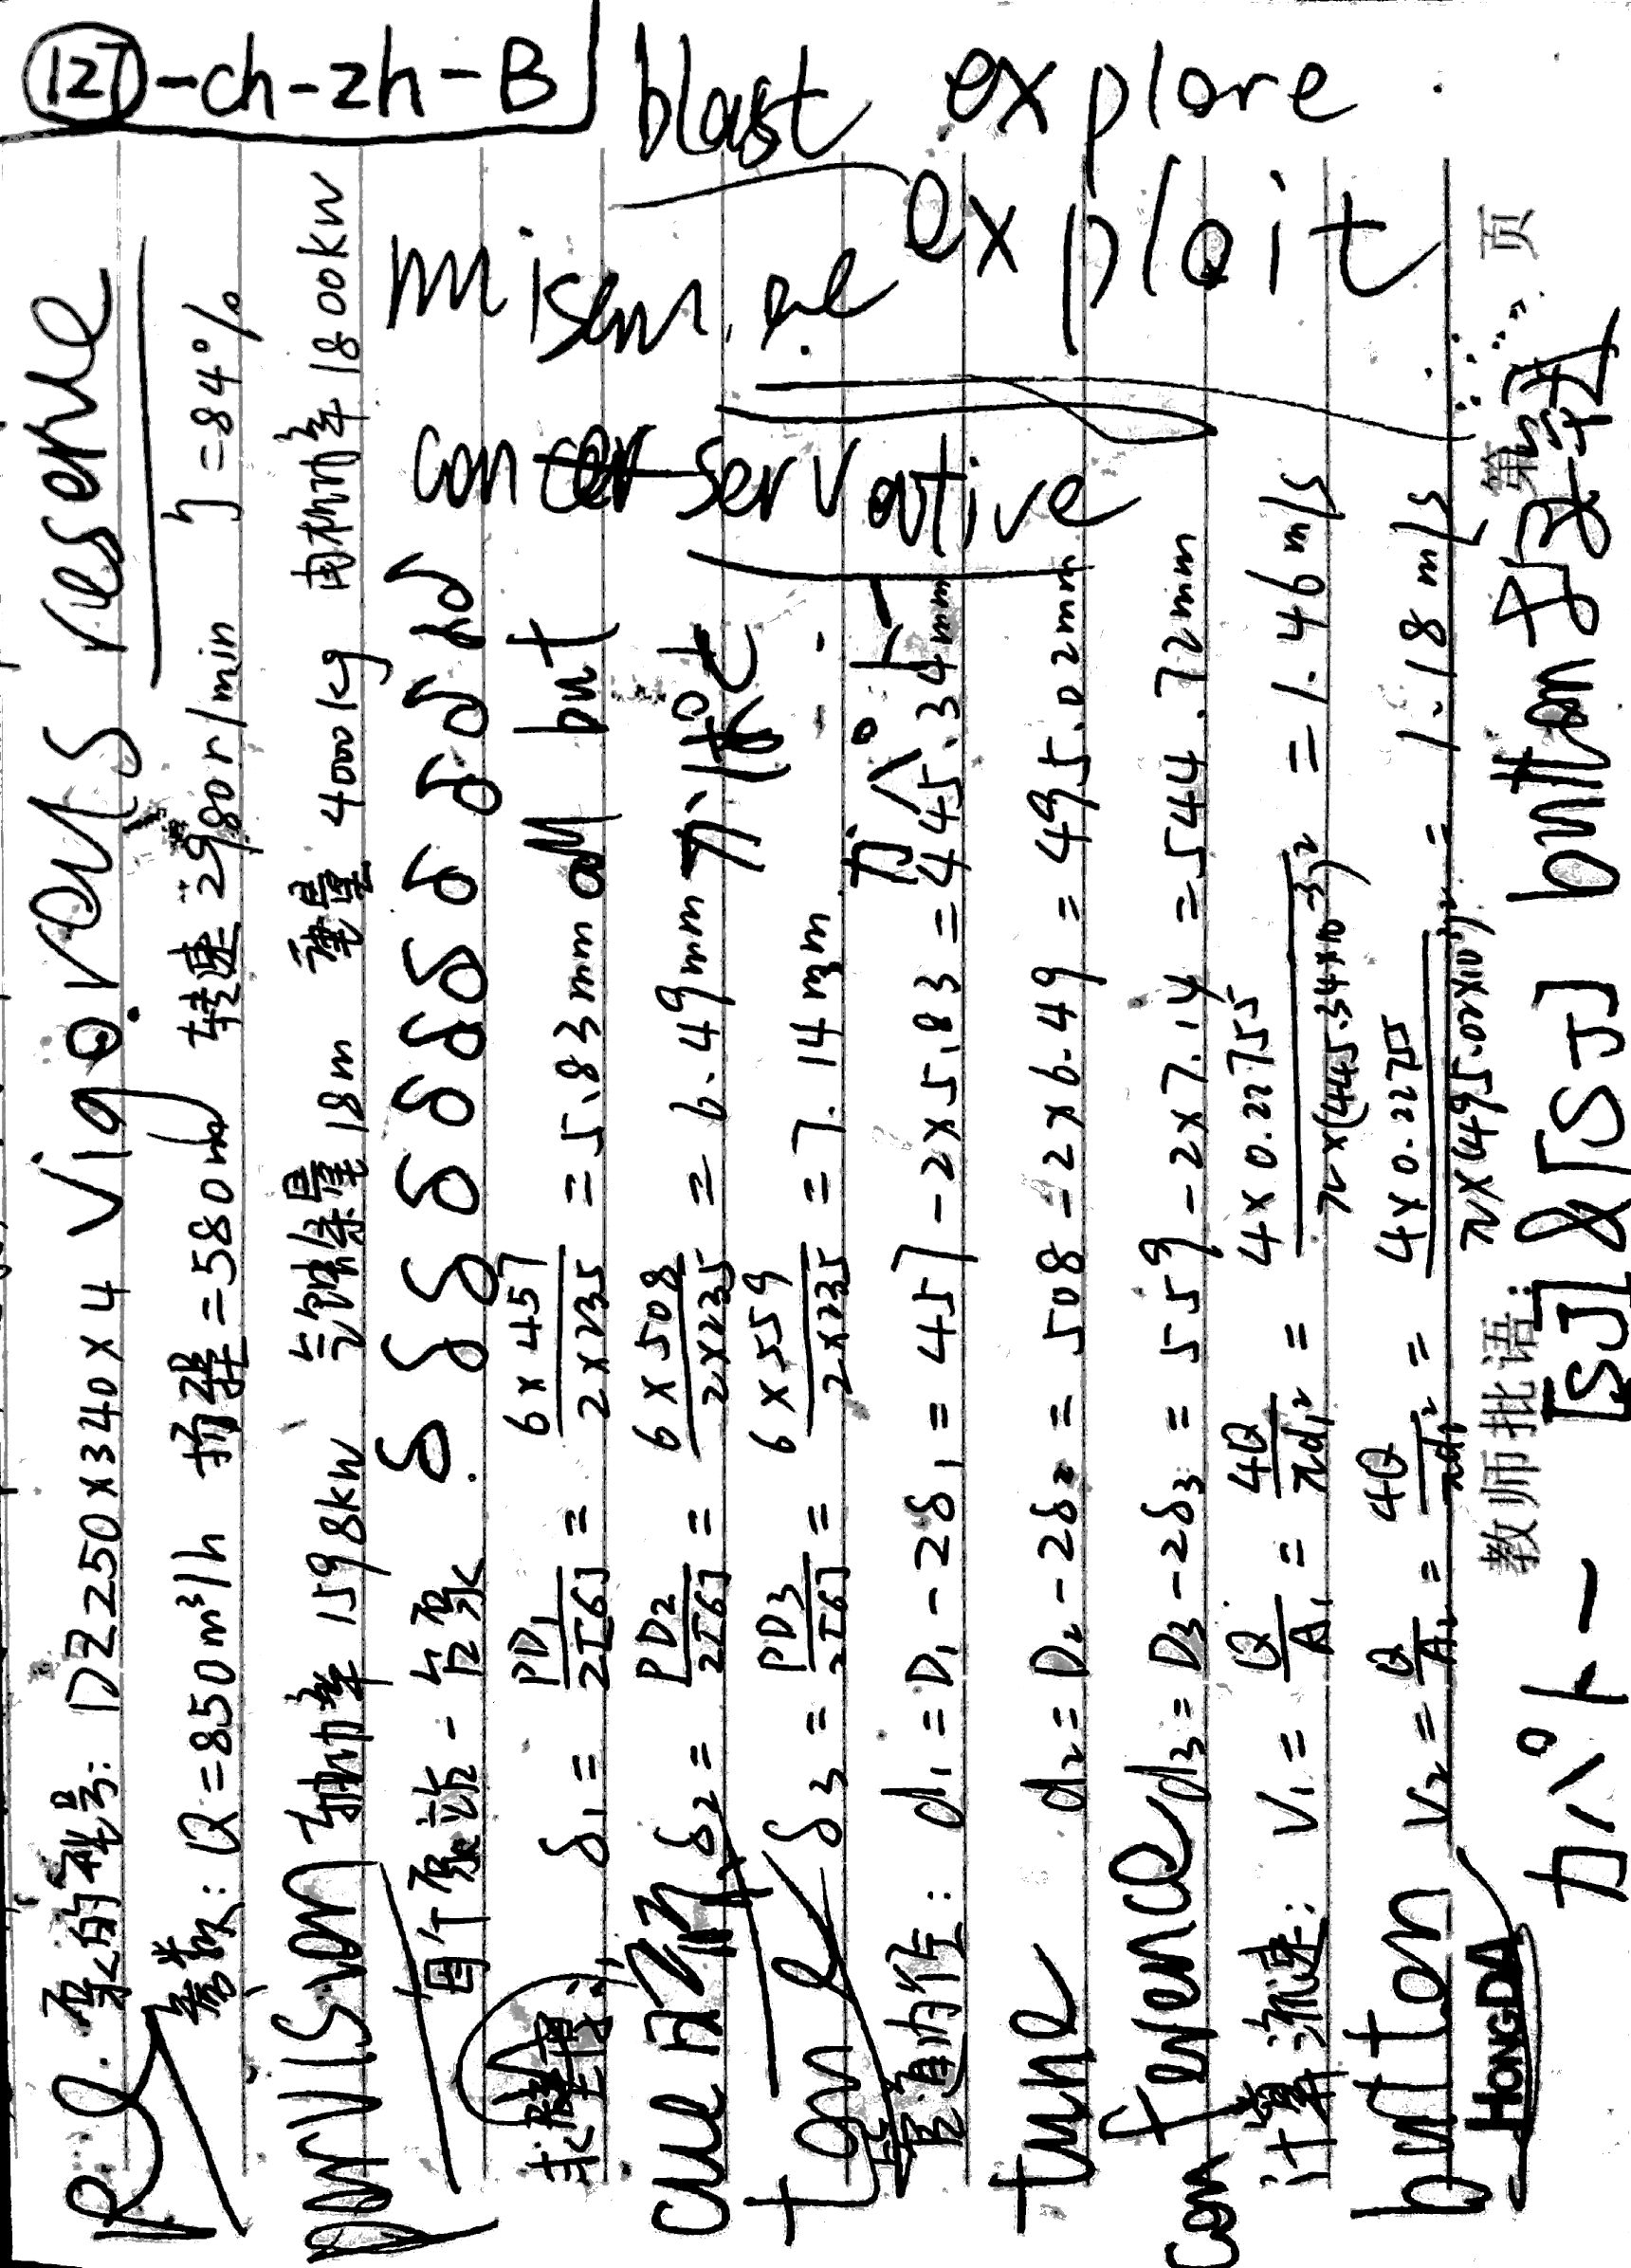 127-ch-zh-B
blast explore
exploit
concer servative
vigorous reserve
泵的神号: DZ250×340×4
参数: Q=850m³/h 扬程=580m 转速 2980r/min η=84%
轴功率 1598kw 气蚀余量 18m 重量 4000kg 电机功率 1800kw
每个泵站-台泵
δ δ δ δ δ δ δ δ δ δ δ δ
求壁厚: δ₁ = PD₁/2[σ] = 6×457/2×235 = 5.83mm all but
δ₂ = PD2/2[σ] = 6×508/2×235 = 6.49mm
δ3 = PD3/2[σ] = 6×559/2×235 = 7.14mm
管道内径: d₁=D₁-2δ₁=457-2×5.83=445.34mm
tune d₂=D₂-2δ₂=508-2×6.49=495.02mm
Conference d3=D3-2δ3=559-2×7.14=544.72mm
计算流速: V₁=Q/A₁=4Q/πd₁²=4×0.22755/π×(445.34×10⁻³)²=1.46m/s
button V₂=Q/A₂=4Q/πd₁²=4×0.2275/π×(495.02×10³)²=1.18m/s
HONGDA 教师批语: 第 页
カパトー [SJ]&[SJ] button